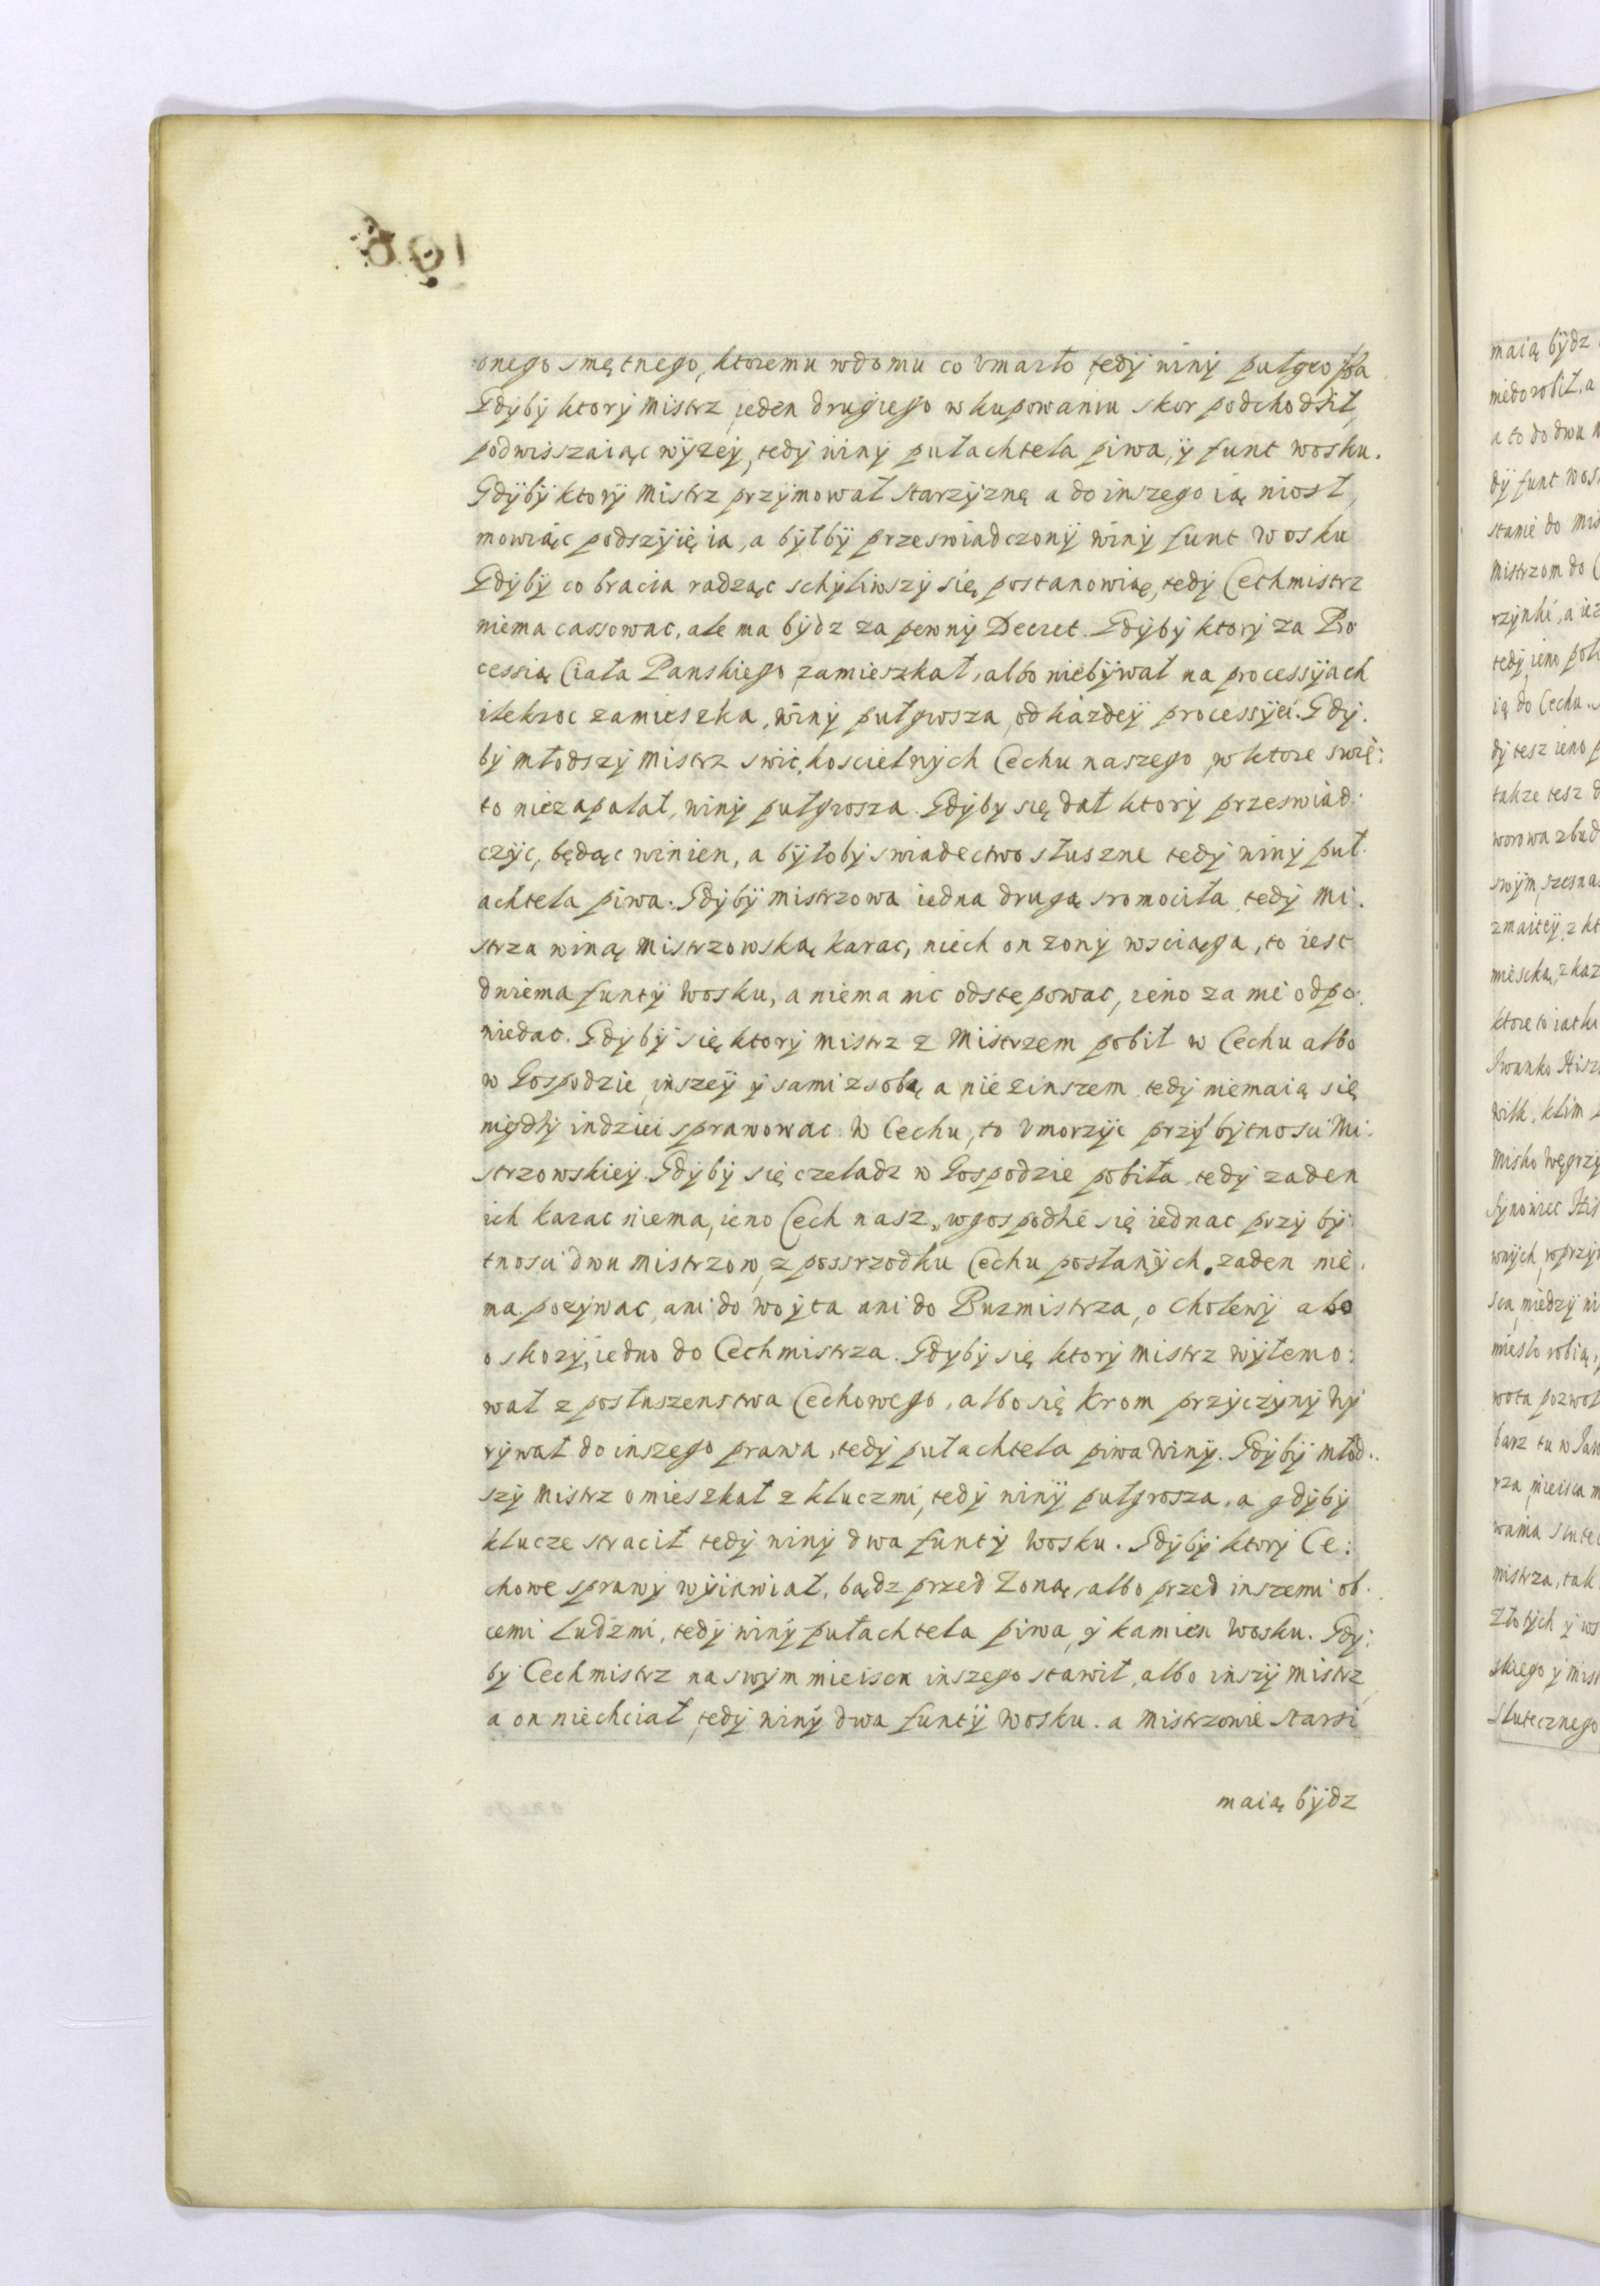 onego smętnego, ktoremu wdomu co vmarło tedÿ winÿ pułgrosza
Gdÿbÿ ktorÿ Mistrz jeden drugiego w kupowaniu skor podchodził,
podwisszaiąc wÿzeÿ, tedÿ winÿ pułachtela piwa, ÿ funt wosku.
Gdÿbÿ ktorÿ Mistrz przÿmował starzÿznę a do inszego ią niosł,
mowiąc podszÿię ia, a bÿłbÿ przeswiadczonÿ winÿ funt wosku
Gdÿbÿ co bracia radząc schÿliwszÿ się postanowią, tedÿ Cechmistrz
niema cassowac, ale ma bÿdz za pewnÿ Decret. Gdÿbÿ ktorÿ za Pro
cessią Ciała Panskiego zamieszkał, albo niebÿwał na processÿach
ilekroc zamieszka, winÿ pułgrosza, od kazdeÿ processÿei. Gdÿ.
bÿ młodszÿ Mistrz swic, koscielnÿch Cechu naszego, w ktore swię:
to niezapalał, winÿ pułgrosza. Gdÿbÿ się dał ktorÿ przeswiad:
czÿc, będąc winien, a bÿłobÿ swiadectwo słuszne tedÿ winÿ puł.
achtela piwa. Gdÿbÿ mistrzowa iedna drugą sromociła, tedÿ Mi.
strza winą Mistrzowską karac, niech on zonÿ wsciąga, to iest
dwiema funtÿ wosku, a niema nic odstępowac, ieno za nie odpo.
wiedac. Gdÿbÿ się ktorÿ Mistrz z Mistrzem pobił w Cechu albo
w Gospodzie inszeÿ ÿ sami z sobą a nie zinszem tedÿ niemaią się
nigdÿ indziei sprawowac. W Cechu, to vmorzÿc przÿ bÿtnosci Mi.
strzowskieÿ. Gdÿbÿ się czeladz w Gospodzie pobiła tedÿ zaden
ich karac niema, ieno Cech nasz, wgospodhe się iednac przÿ bÿ
tnosci dwu Mistrzow z possrzodku Cechu posłanÿch. zaden nie.
ma pozÿwac, ani do woÿta ani do Burmistrza, o cholewÿ abo
o skorÿ, iedno do Cechmistrza. Gdÿbÿ się ktorÿ Mistrz wÿłemo:
wał z posłuszenstwa Cechowego, albo się krom przÿczÿnÿ wÿ
rÿwał do inszego prawa, tedÿ pułachtela piwa winÿ. Gdÿbÿ młod..
szÿ Mistrz omieszkał z kluczmi, tedÿ winÿ pułgrosza, a gdÿbÿ
klucze stracił tedÿ winÿ dwa funtÿ wosku. Gdÿbÿ ktorÿ Ce:
chowe sprawÿ wÿiawiał, bądz przed Zoną, albo przed inszemi ob.
cemi Ludzmi, tedÿ winÿ pułachtela piwa, ÿ kamien wosku. Gdÿ:
bÿ Cechmistrz na swÿm mieiscu inszego stawił, albo inszÿ mistrz
a on niechciał tedÿ winÿ dwa funtÿ wosku. a Mistrzowie starsi
maią bÿdz
maią bÿdz
niedorobił, a
a to do dwu
dÿ funt
Mistrzom do
tedÿ ieno
ią do Cechu.
dÿ tesz ieno
takze tesz
ktore to iatki
misko węgrzÿ
mistrza, tak
złotÿch ÿ
skiego ÿ
skutecznego